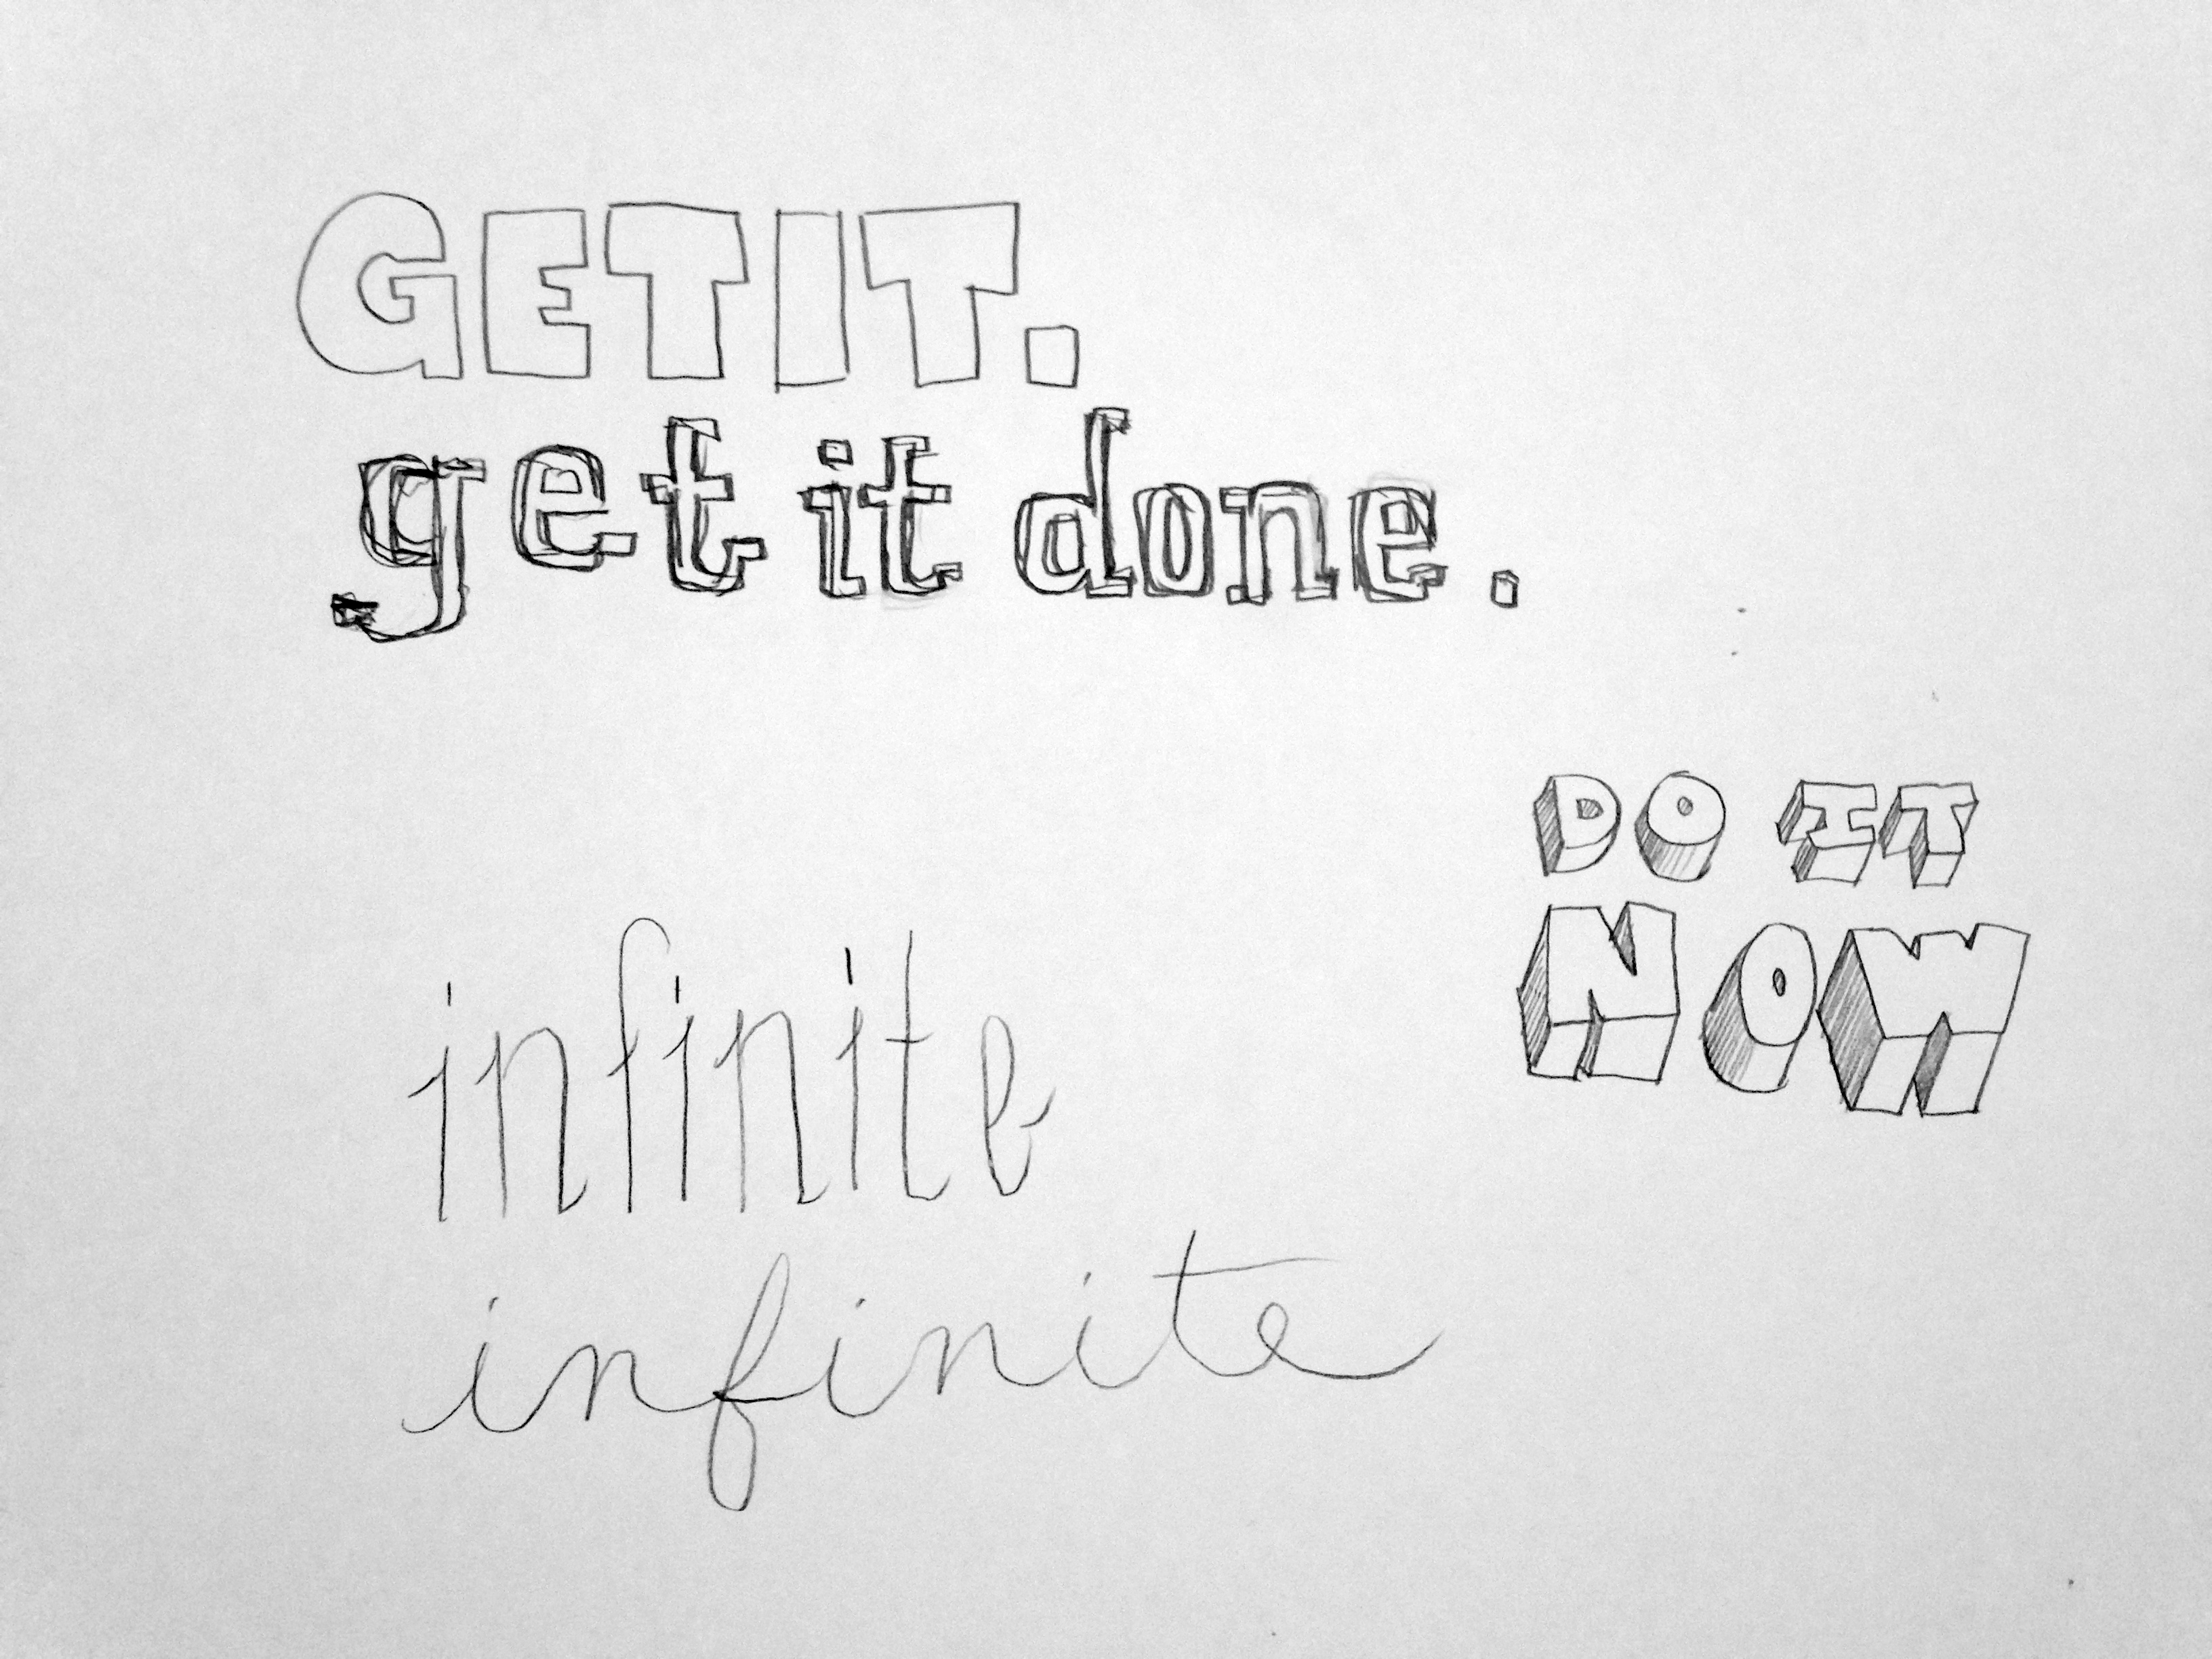 GET IT.
get it done.
DO IT
NOW
infinite
infinite